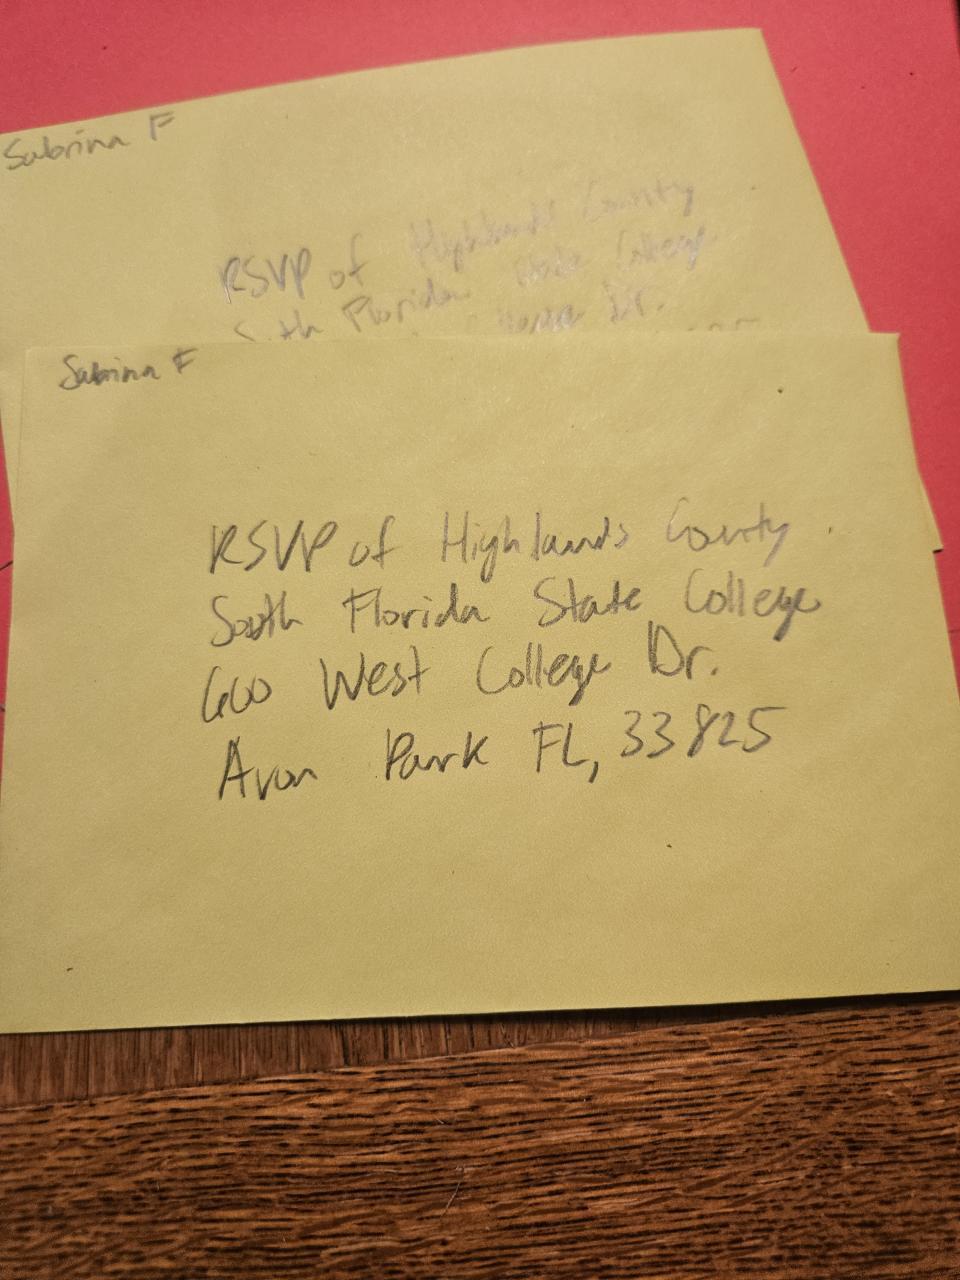 Sabrina F
RSVP of Highlands County
South Florida State College
Dr.
Sabrina F
RSVP of Highlands County
South Florida State College
600 West College Dr.
Avon Park FL, 33825